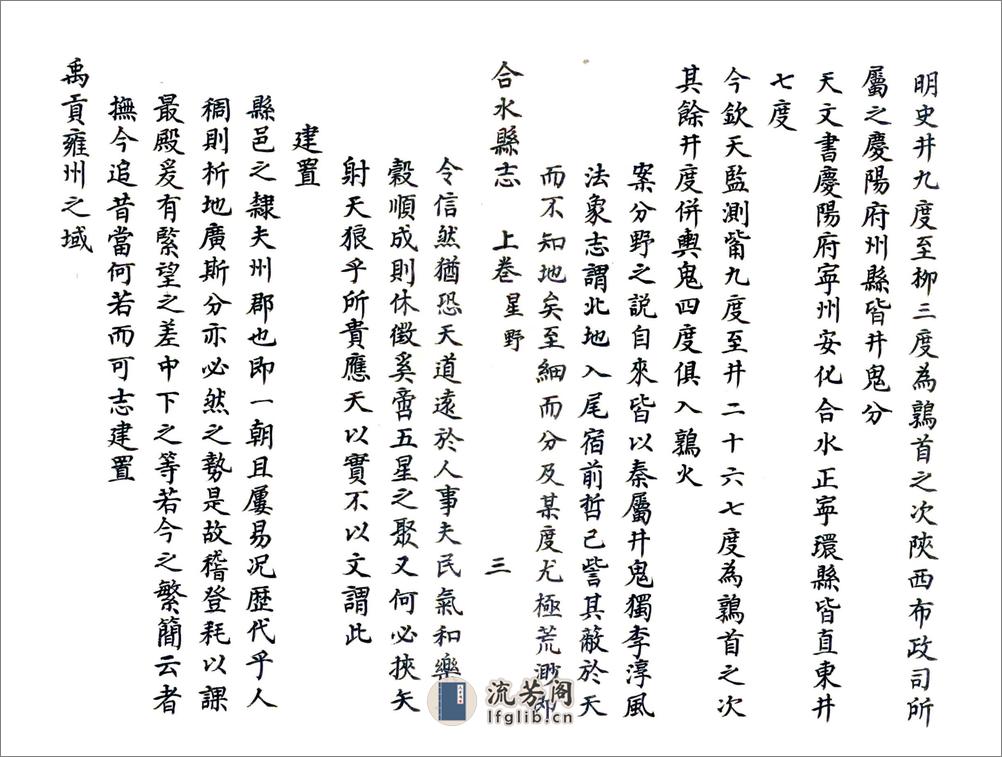 明史井九度至柳三度為鶉首之次陝西布政司所
屬之慶陽府州縣皆井鬼分
天文書慶陽府寧州安化合水正寧環縣皆直東井
七度
今欽天監測觜九度至井二十六七度為鶉首之次
其餘井度併輿鬼四度俱入鶉火
案分野之説自來皆以秦屬井鬼獨李淳風
法象志謂北地入尾宿前哲已訾其蔽於天
而不知地矣至細而分及某度尤極荒渺即
合水縣志 上卷 星野 三
令信然猶恐天道遠於人事夫民氣和樂
穀順成則休徵奚啻五星之聚又何必挾矢
射天狼乎所貴應天以實不以文謂此
建置
縣邑之隸夫州郡也即一朝且屢易况歷代乎人
稠則析地廣斯分亦必然之勢是故稽登耗以課
最殿爰有緊望之差中下之等若今之繁簡云者
撫今追昔當何若而可志建置
禹貢雍州之域
流芳阁
lfglib.cn